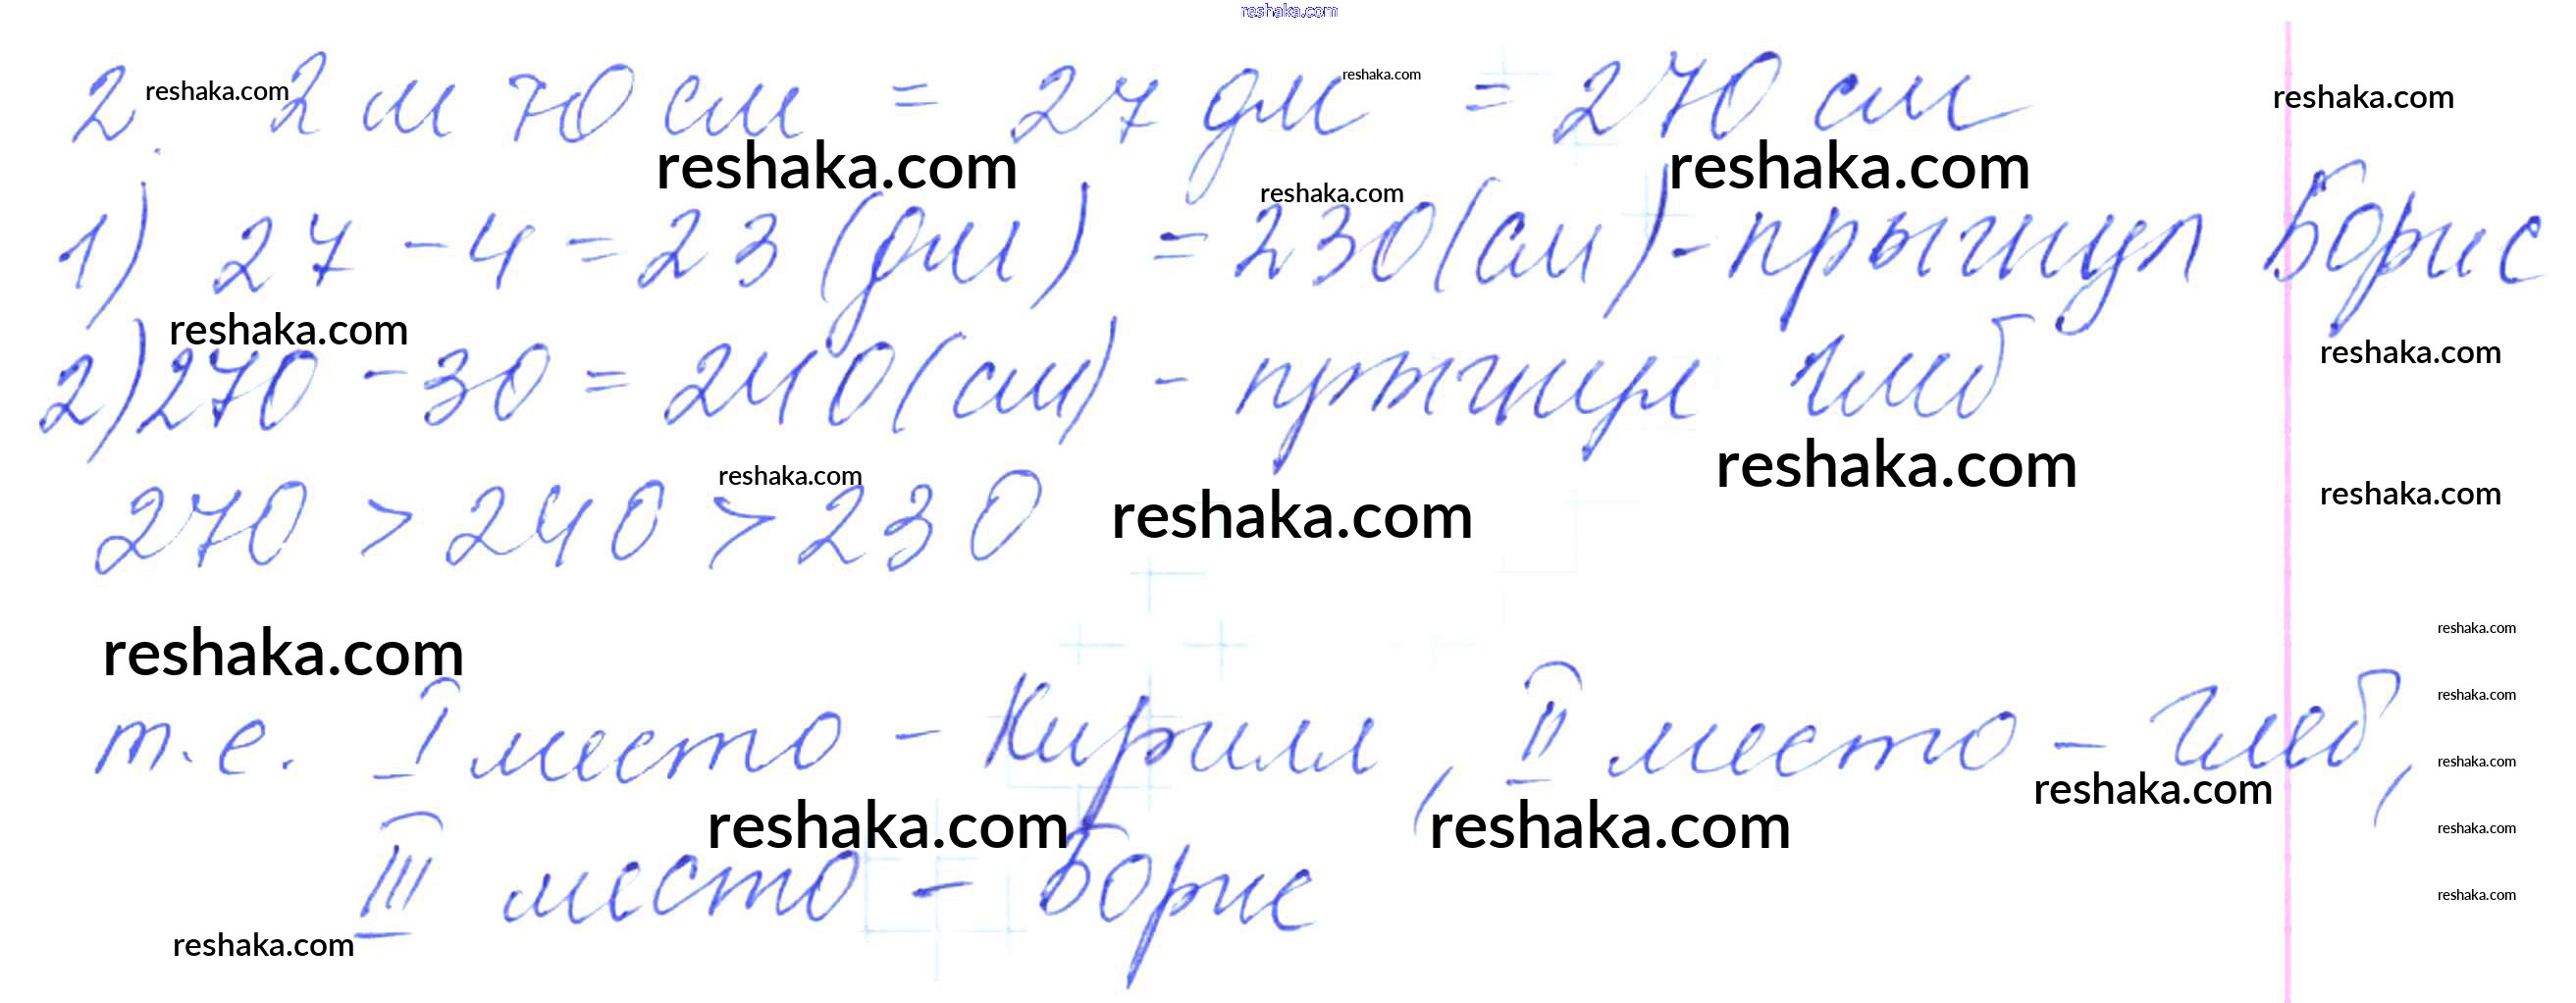 reshaka.com
2. reshaka.com 2 м 70 см = 27 дм reshaka.com = 270 см reshaka.com
reshaka.com reshaka.com reshaka.com
1) 27 - 4 = 23 (дм) = 230 (см) - прыгнул Борис
reshaka.com reshaka.com
2) 270 - 30 = 240 (см) - прыгнул Глеб
reshaka.com reshaka.com reshaka.com
270 > 240 > 230 reshaka.com
reshaka.com reshaka.com
т.е. I место - Кирилл, II место - Глеб,
reshaka.com reshaka.com
reshaka.com reshaka.com reshaka.com
III место - Борис
reshaka.com reshaka.com
reshaka.com